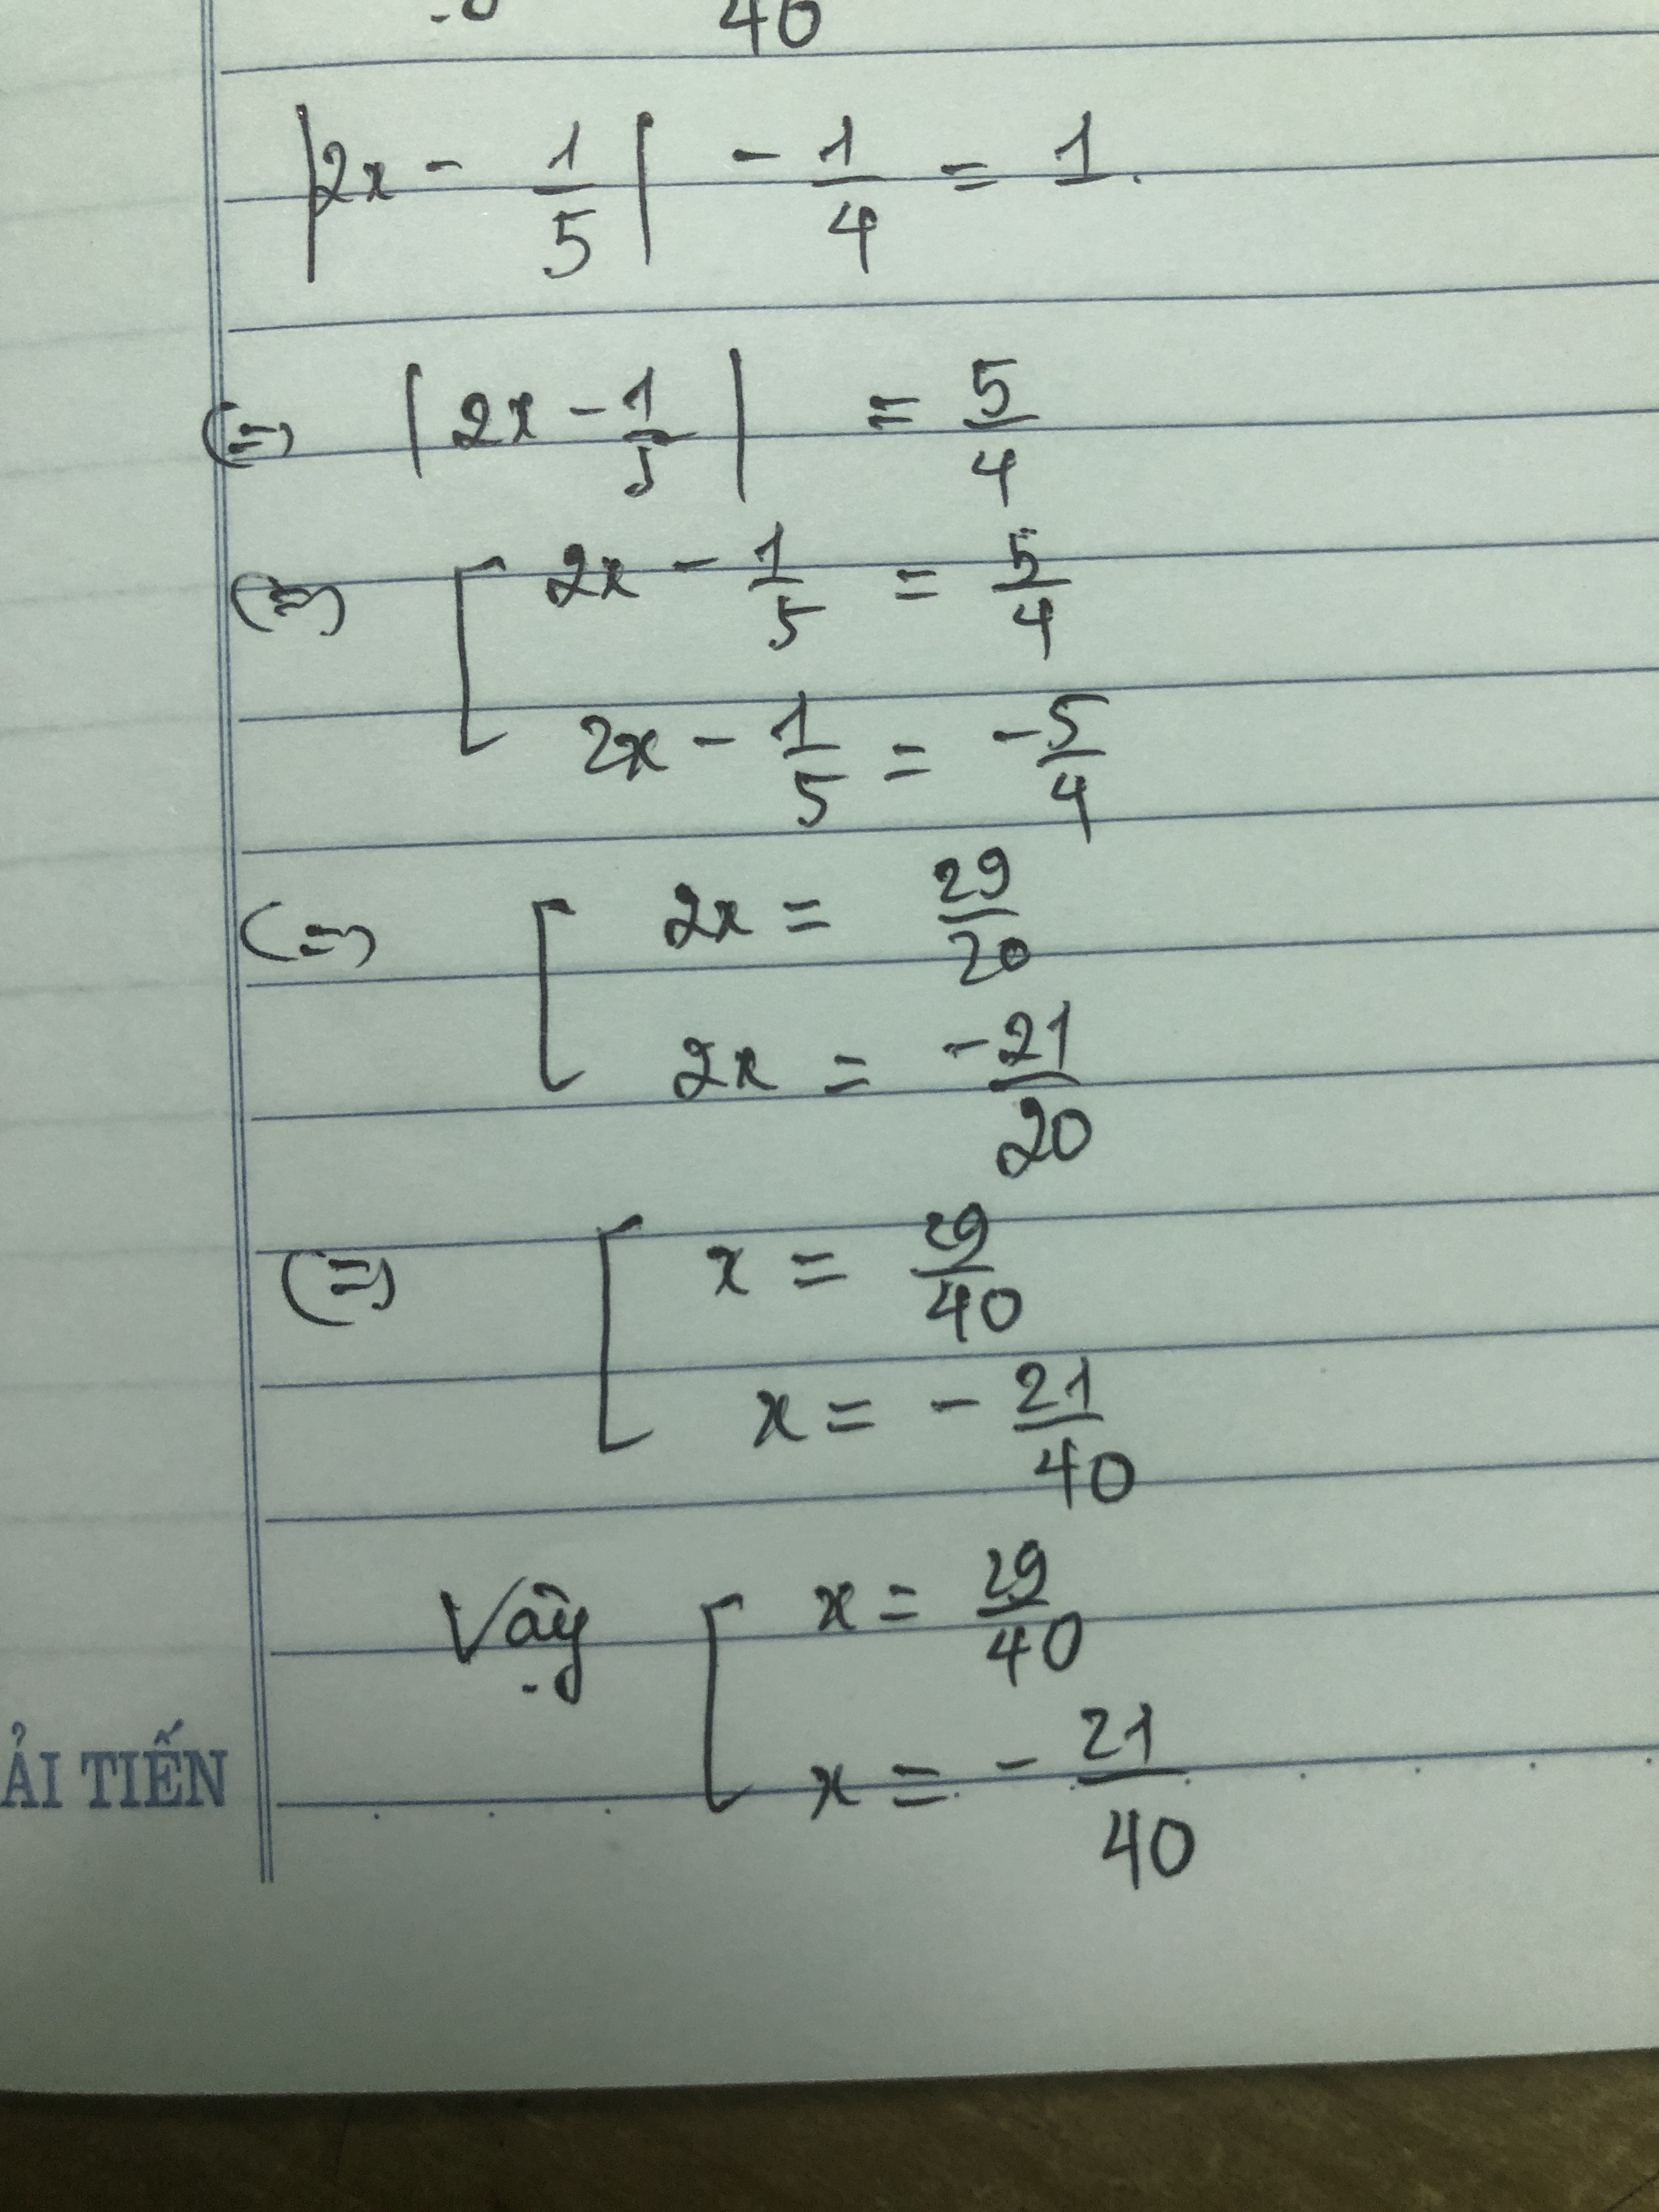 40
|2x - 1/5| - 1/4 = 1.
(=) |2x - 1/5| = 5/4
(=) [ 2x - 1/5 = 5/4
2x - 1/5 = -5/4
(=) [ 2x = 29/20
2x = -21/20
(=) [ x = 29/40
x = - 21/40
Vậy [ x = 29/40
x = - 21/40
ẢI TIẾN